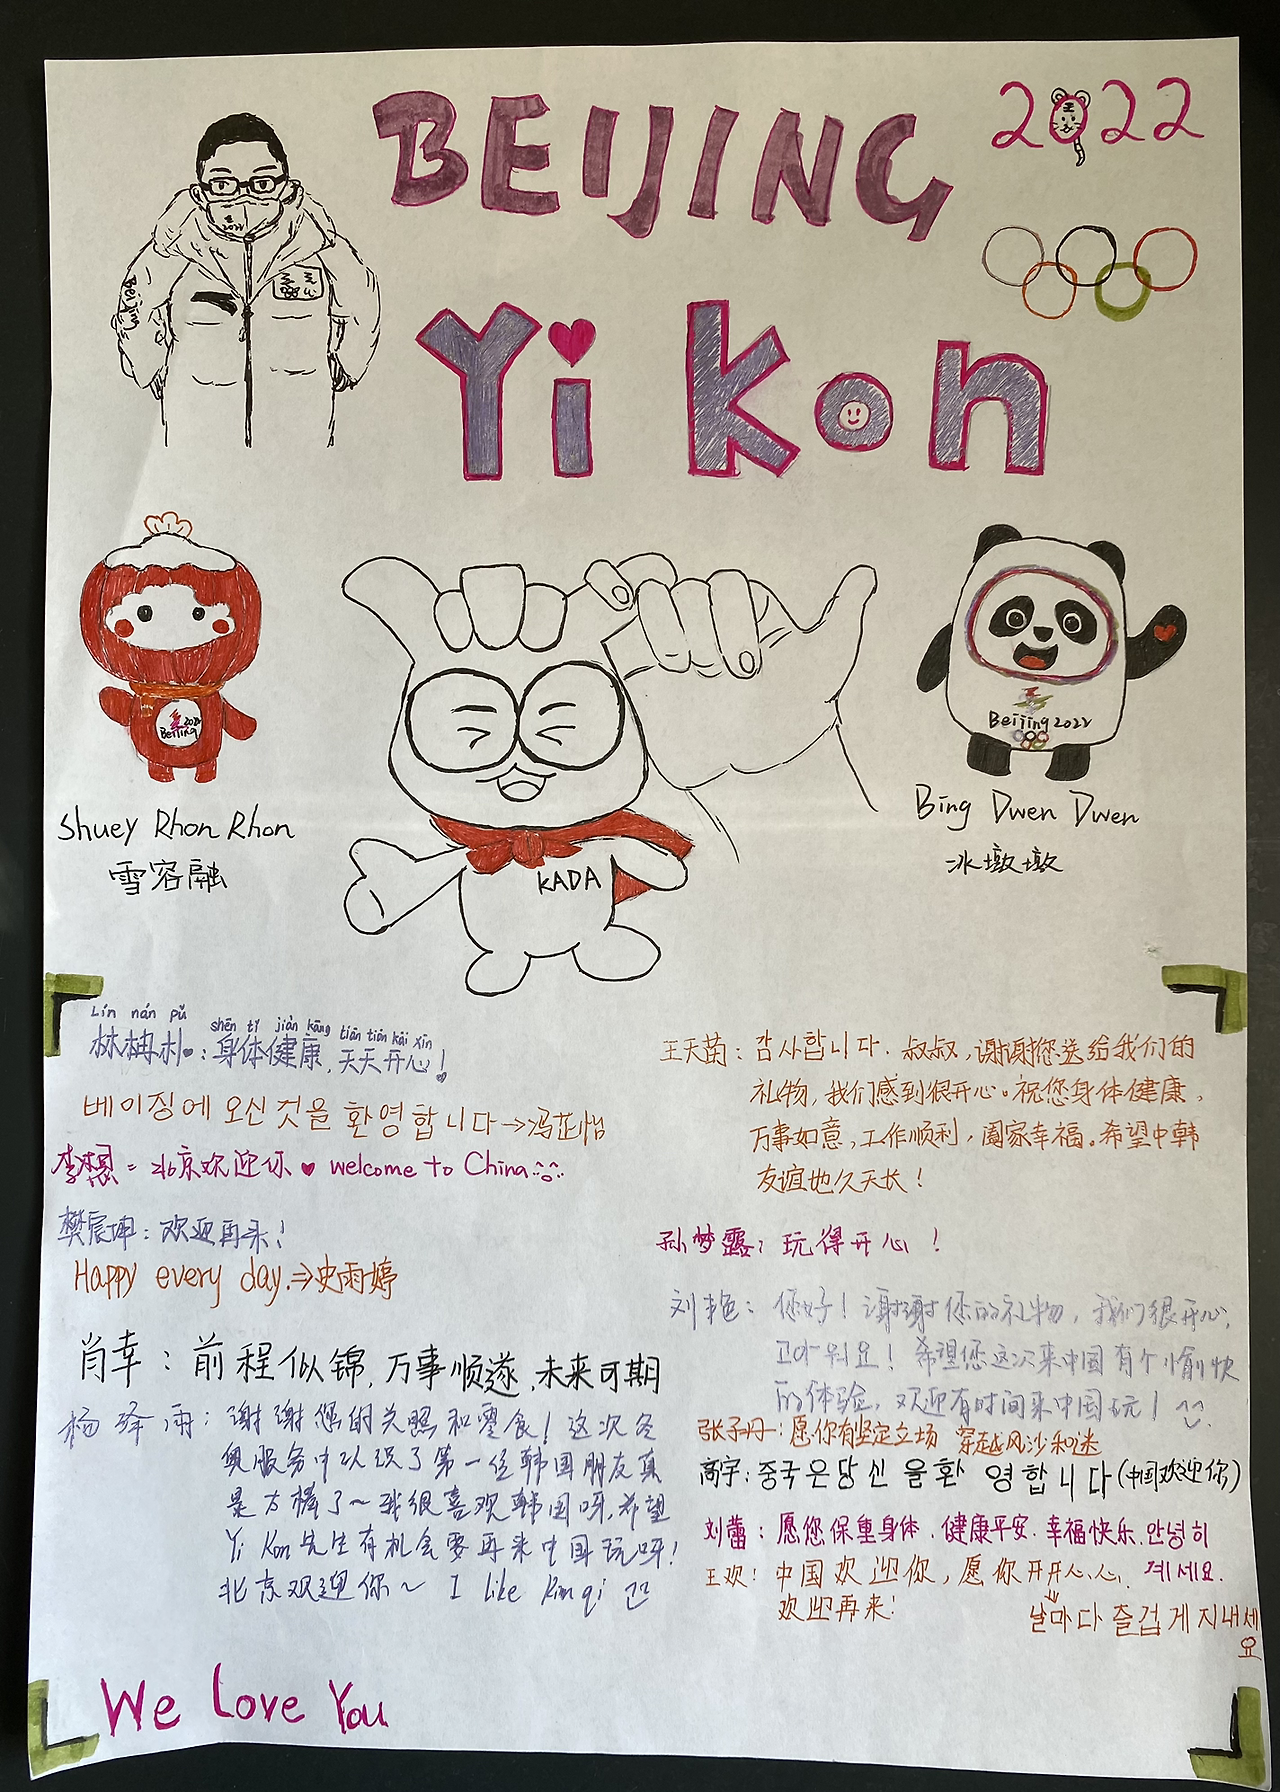 BEIJING
2022
2022
Beijing
Yi Kon
Beijing
2022
Beijing 2022
Shuey Rhon Rhon
雪容融
Bing Dwen Dwen
冰墩墩
KADA
Lín nán pǔ shēn tǐ jiàn kāng tiān tiān kāi xīn
林柟朴♥:身体健康,天天开心!
베이징에 오신 것을 환영합니다→冯芷怡
李想=北京欢迎你♥ welcome to China
樊宸坤:欢迎再来!
Happy every day.⇒史雨婷
肖幸:前程似锦,万事顺遂,未来可期
杨绎雨:谢谢您的关照和零食!这次冬
奥服务中认识了第一位韩国朋友真
是太棒了~我很喜欢韩国呀,希望
Yi Kon先生有机会要再来中国玩呀!
北京欢迎你~ I like Kim qi
王天茵:감사합니다.叔叔,谢谢您送给我们的
礼物,我们感到很开心。祝您身体健康,
万事如意,工作顺利,阖家幸福。希望中韩
友谊地久天长!
孙梦露:玩得开心!
刘艳:你好!谢谢你的礼物,我们很开心,
고마워요!希望您这次来中国有个愉快
的体验,欢迎有时间来中国玩!^^.
张子丹:愿你有坚定立场 穿越风沙和迷
高宇:중국은 당신을 환영합니다(中国欢迎你)
刘蕾:愿您保重身体.健康平安.幸福快乐.안녕히
계세요.
王欢:中国欢迎你,愿你开开心心.
欢迎再来!
날마다 즐겁게 지내세
요
We Love You